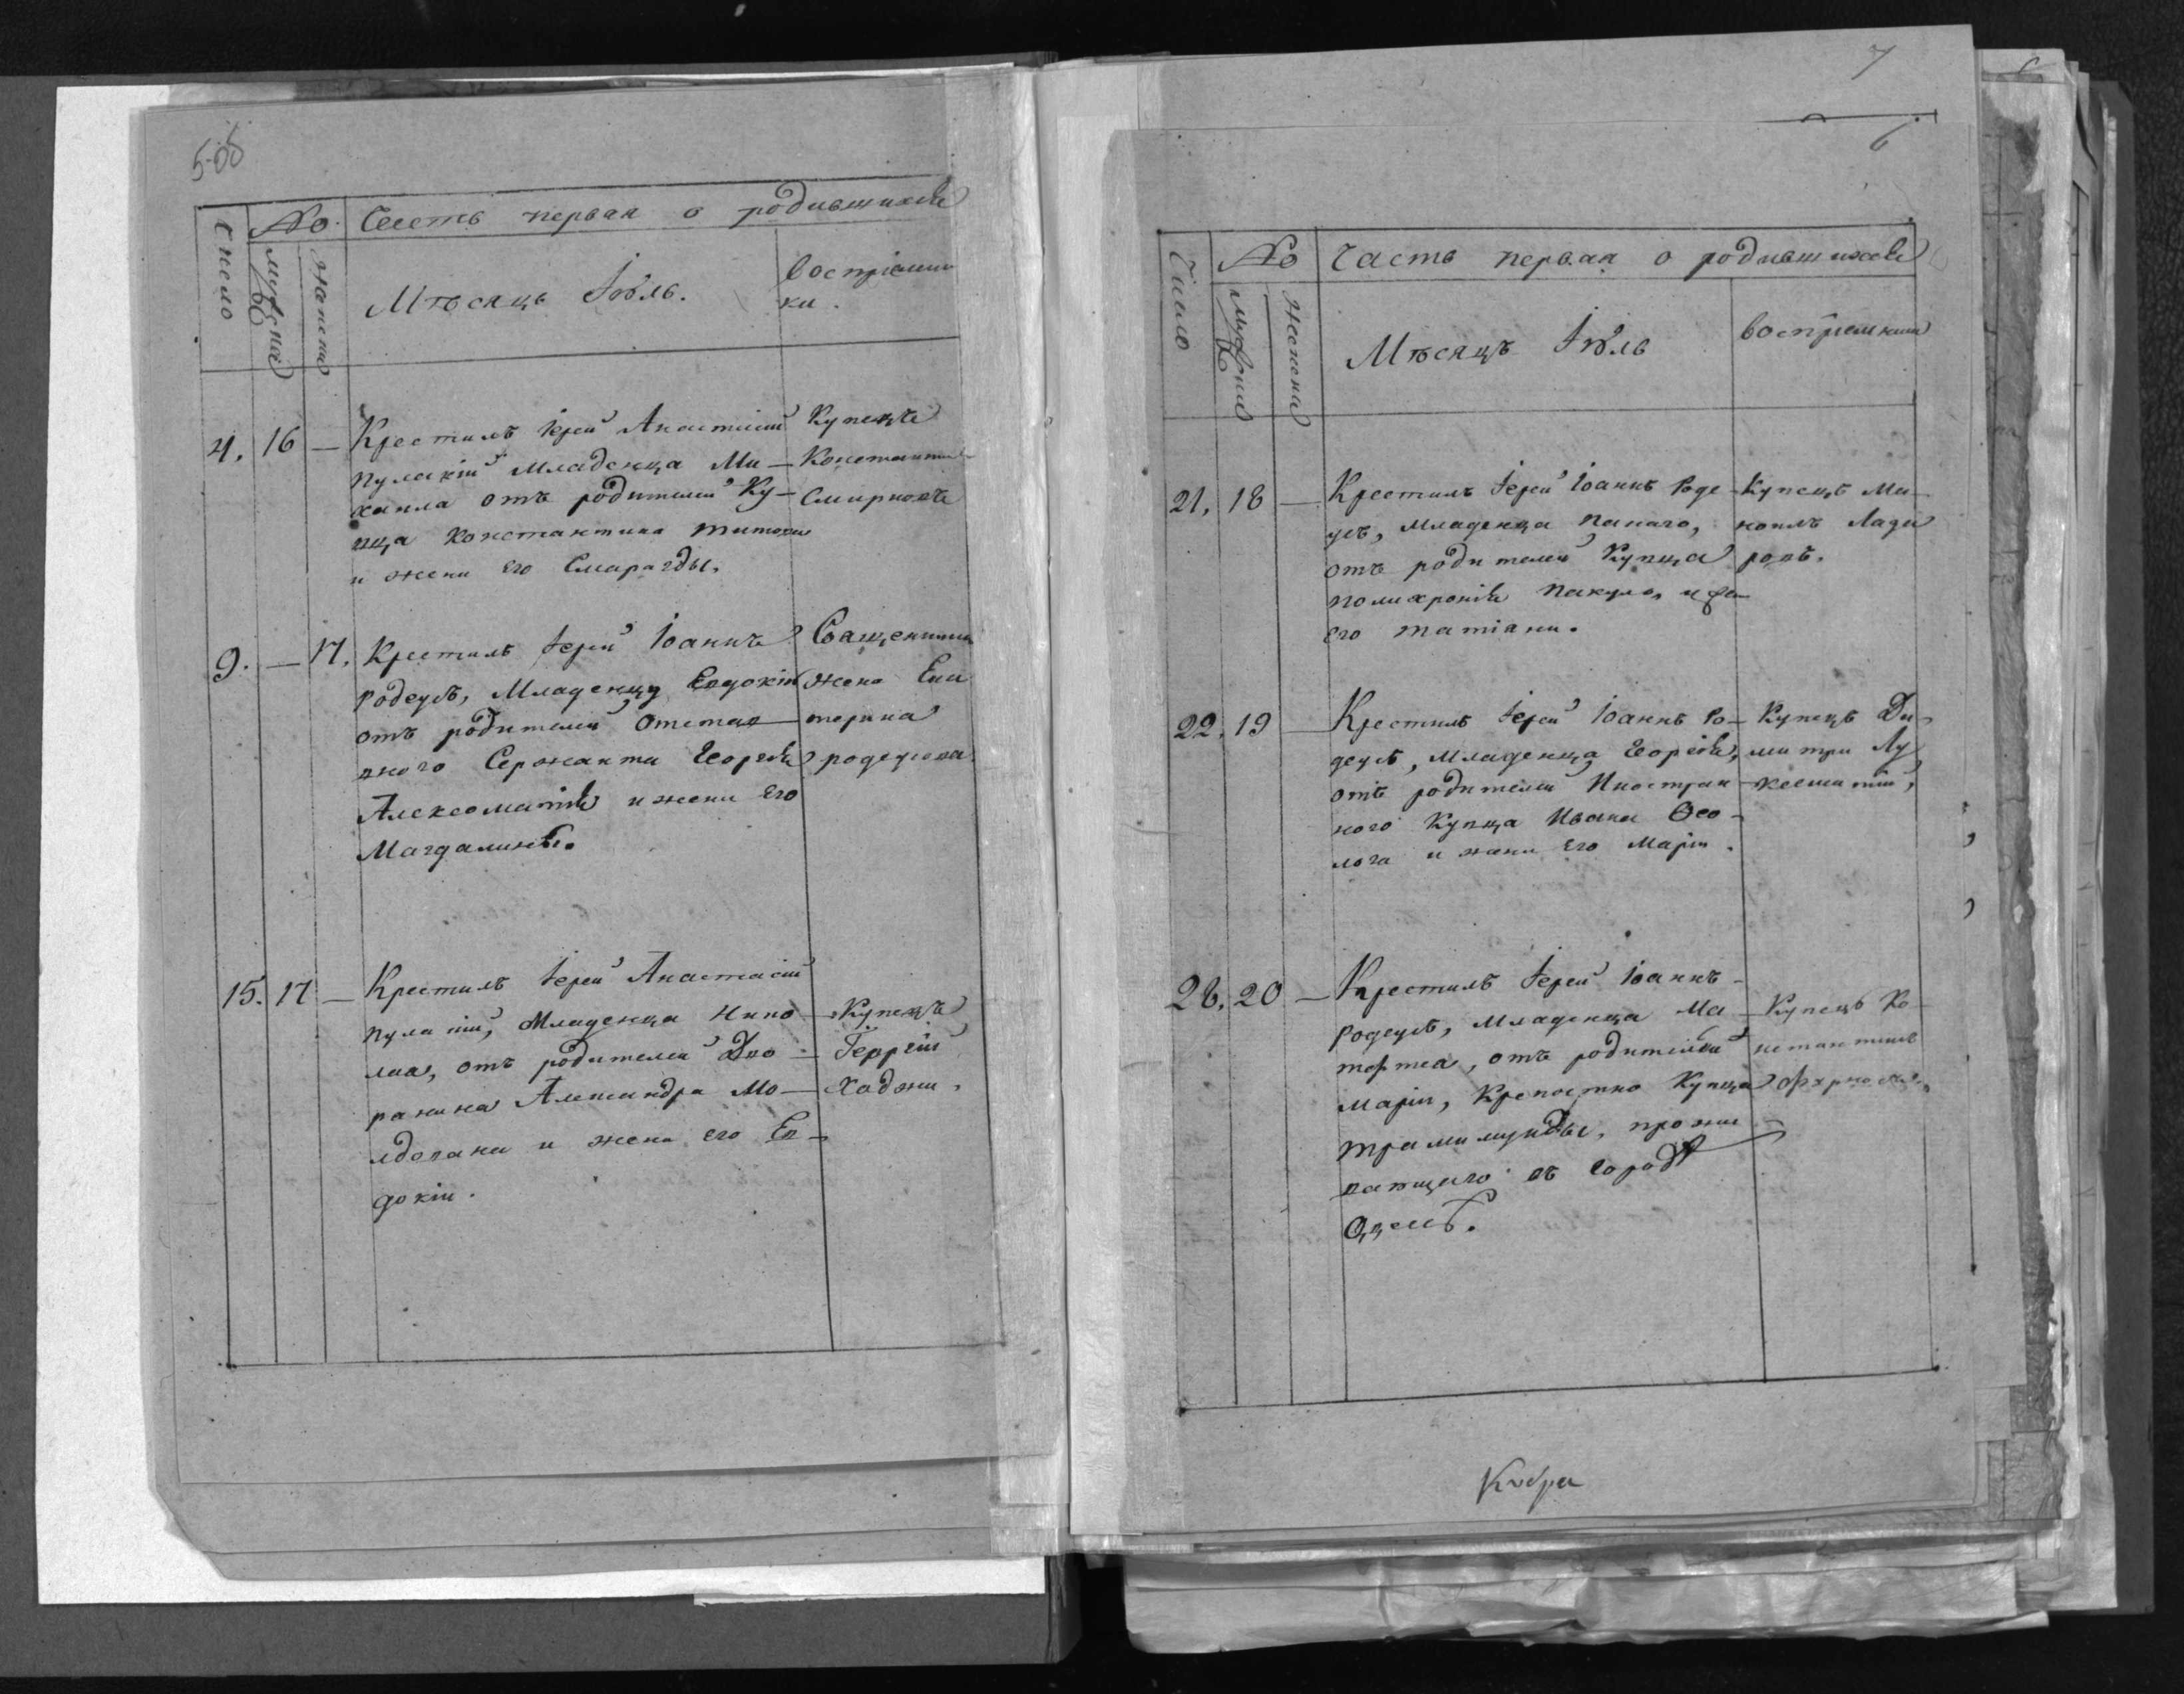 5 об
№ Часть первая о родившихся
Число
мужска
женска
Мѣсяцъ Іюль.
воспріемни
ки.
4. 16 — Крестилъ Іерей Анастасій
Пулакій Младенца Ми-
хаила отъ родителей Ку-
пца Константина
и жени его Смарагды.
Купецъ
Константинъ
Смирновъ
9. — 17. Крестилъ Іерей Іоаннъ
Родеусъ, Младенцу Евдокію
отъ родителей Отстав
ного Сержанта Георгія
Алексоматія и жени его
Магдалины.
Священника
жена Ека
терина
родеусова
15. 17 — Крестилъ Іерей Анастасій
Пулакій, Младенца Нико
лаа, отъ родителей Дво
ранина Александра Мо-
лдована и жени его Ев-
докіи.
Купецъ
Георгій
Хаджи.
7
6
№ Часть первая о родившихся
Число
мужска
женска
Мѣсяцъ Іюль
воспріемники
21. 18 — Крестилъ Іерей Іоаннъ Роде
усъ, младенца Панаго,
отъ родителей Купца
полихронія Пакуло, и же
его татіани.
Купецъ Ми
хаилъ Лази
ровъ.
22. 19 — Крестилъ Іерей Іоаннъ Ро-
деусъ, Младенца Георгія,
отъ родителей Иностран
ного Купца Ивана Ѳео-
лога и жени его Маріи.
Купецъ Ди
митри
28. 20 — Крестилъ Іерей Іоаннъ
Родеусъ, Младенца Ма
тфтеа, отъ родителей
Маріи, Крепостно Купца
прожи
вающаго въ городѣ
Одессѣ.
Купецъ Ко
нстантинъ